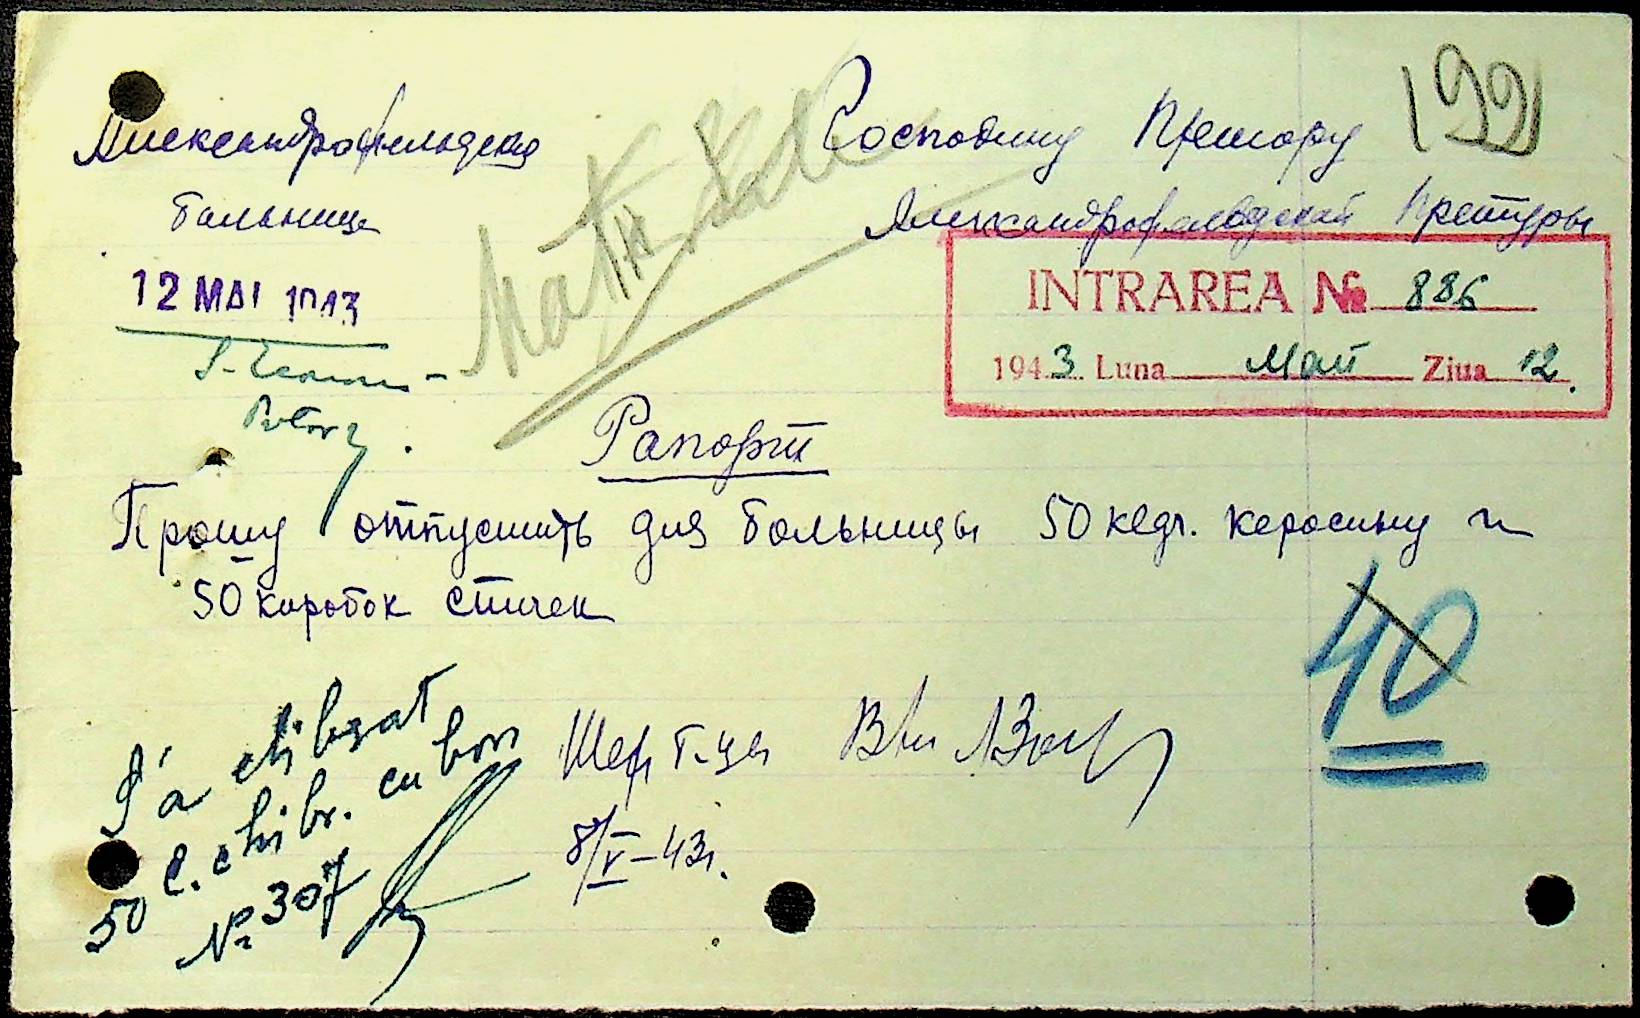 199
Александрофельдская
больница
12 MAI 1943
Господину Претору
Александрофельдской Претуры
INTRAREA № 886
1943 Luna Май Ziua 12.
Рапорт
Прошу отпустить для больницы 50 кедг. керосину и
50 коробок спичек
40
S'a elibgat
50 c. chibr. cu bon
№ 307
Шеф б-цы
8/V-43г.